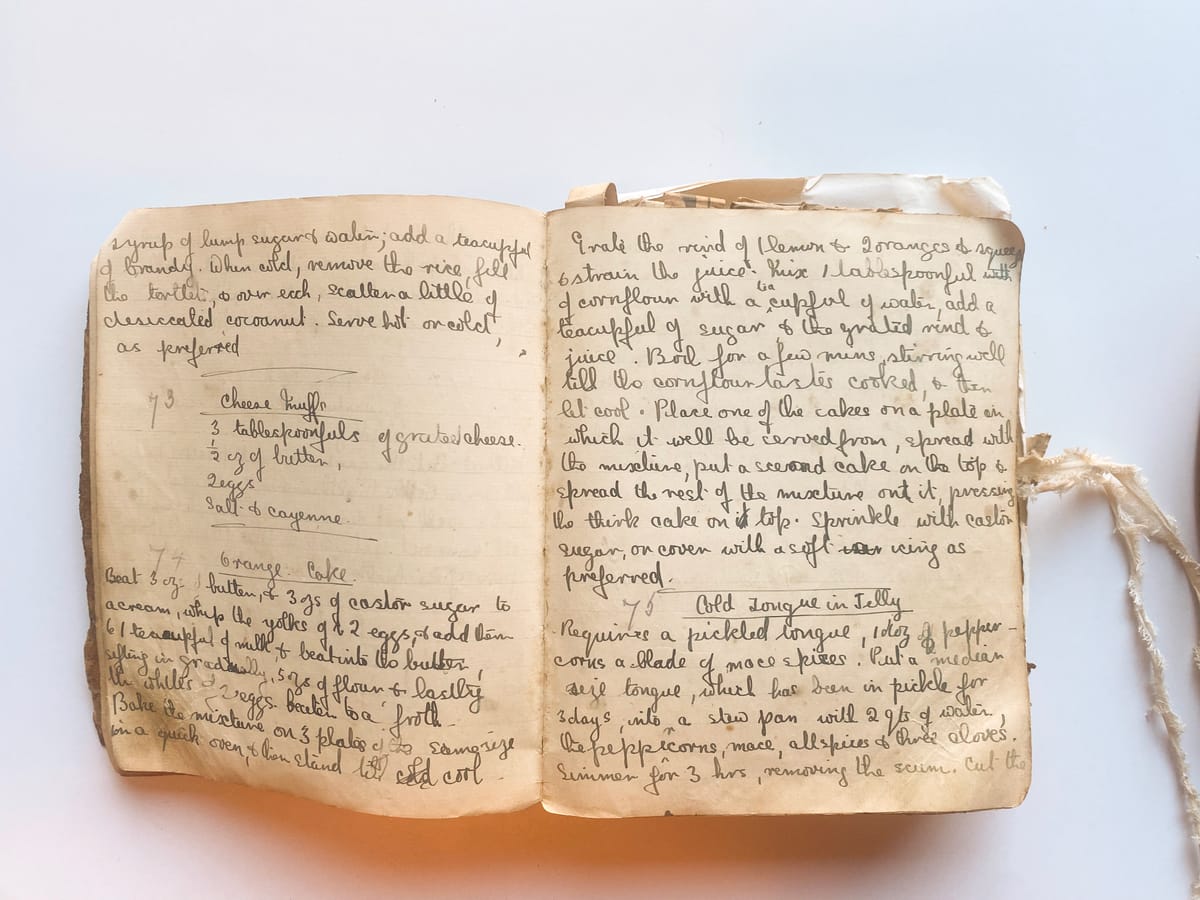 syrup of lump sugar & water; add a teacupful
of brandy. When cold, remove the rice, fill
the tartlets, & over each, scatter a little of
desiccated cocoanut. Serve hot or cold,
as preferred
73 Cheese Puffs
3 tablespoonfuls of grated cheese.
1/2 oz of butter,
2 eggs
Salt & cayenne.
74 Orange Cake.
Beat 3 oz butter, & 3 ozs of castor sugar to
a cream, whip the yolks of 2 eggs, & add them
to 1 teacupful of milk, & beat into the butter,
sifting in gradually, 5 ozs of flour & lastly
the whites of 2 eggs beaten to a froth
Bake the mixture on 3 plates of same size
in a quick oven, & then stand till cool
Grate the rind of 1 lemon & 2 oranges & squeeze
& strain the juice. Mix 1 tablespoonful
of cornflour with a tea cupful of water, add a
teacupful of sugar & the grated rind &
juice. Boil for a few mins, stirring well
till the cornflour tastes cooked, & then
let cool. Place one of the cakes on a plate in
which it will be served from, spread with
the mixture, put a second cake on the top &
spread the rest of the mixture on it, pressing
the think cake on top. Sprinkle with castor
sugar, or cover with a soft icing as
preferred.
75 Cold Tongue in Jelly
Requires a pickled tongue, 1 doz pepper-
corns a blade of mace spices. Put a median
size tongue, which has been in pickle for
3 days, into a stew pan with 2 qts of water,
the peppicorns, mace, allspices & three cloves.
Simmer for 3 hrs, removing the scum. Cut the